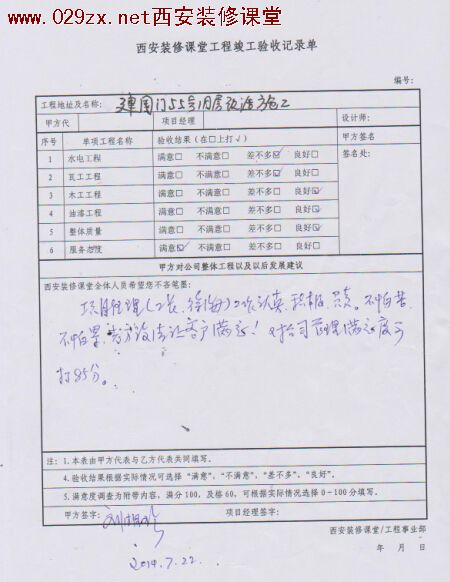 www.029zx.net西安装修课堂
西安装修课堂工程竣工验收记录单
编号:
工程地址及名称: 建国门55号旧房改造施工
甲方代 项目经理 设计师:
序号 单项工程名称 验收结果(在□上打√) 甲方签名
1 水电工程 满意□ 不满意□ 差不多☑ 良好□ 签名处:
2 瓦工工程 满意□ 不满意□ 差不多☑ 良好□
3 木工工程 满意□ 不满意□ 差不多□ 良好☑
4 油漆工程 满意□ 不满意□ 差不多□ 良好☑
5 整体质量 满意□ 不满意□ 差不多□ 良好☑
6 服务态度 满意☑ 不满意□ 差不多□ 良好□
甲方对公司整体工程以及以后发展建议
西安装修课堂全体人员希望您不吝笔墨:
项目经理(工长、徐海)工作认真、积极、负责。不怕苦
不怕累,想方设法让客户满意!对公司管理满意度可
打85分。
注:1.本表由甲方代表与乙方代表共同填写。
4.验收结果根据实际情况可选择“满意”,“不满意”,“差不多”,“良好”。
5.满意度调查为附带内容,满分100,及格60,可根据实际情况选择0-100分填写。
甲方签字: 项目经理签字:
西安装修课堂/工程事业部
2014.7.22. 年 月 日